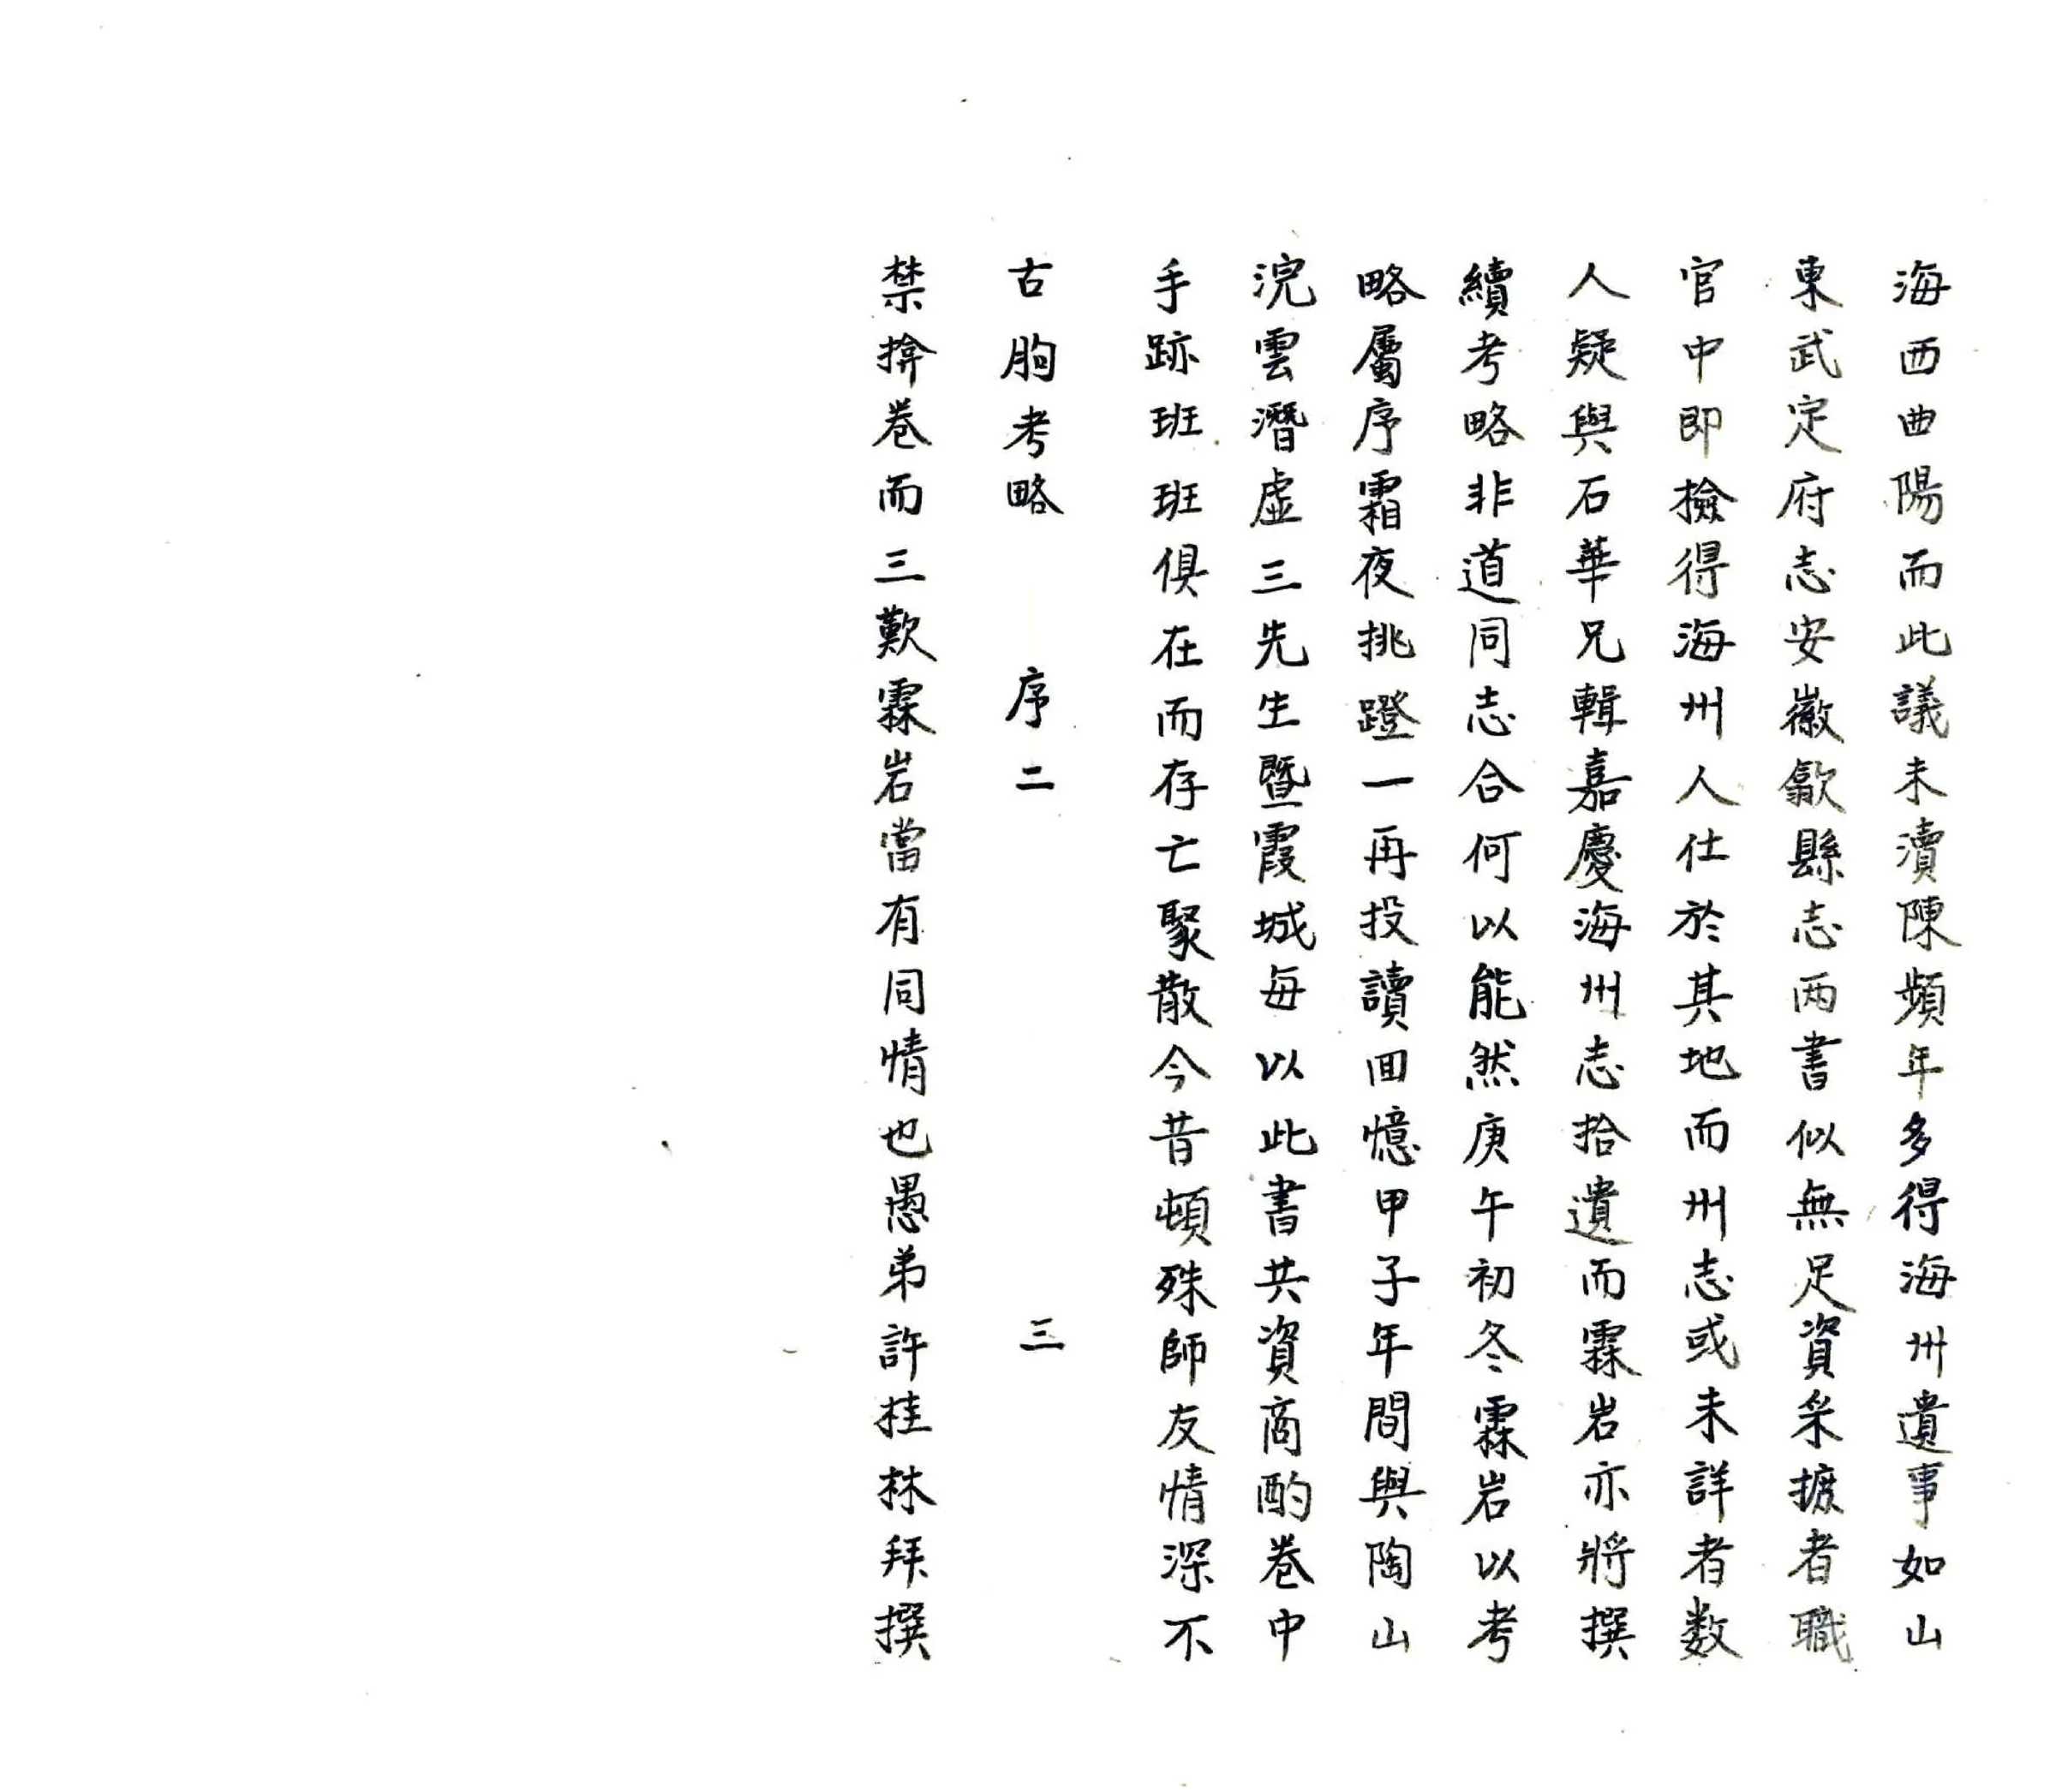 海西曲陽而此議未瀆陳頻年多得海州遺事如山
東武定府志安徽歙縣志两書似無足資采摭者職
官中即撿得海州人仕於其地而州志或未詳者数
人疑與石華兄輯嘉慶海州志拾遺而霖岩亦將撰
續考略非道同志合何以能然庚午初冬霖岩以考
略屬序霜夜挑蹬一再投讀回憶甲子年間與陶山
浣雲潛虛三先生暨霞城每以此書共資商酌卷中
手跡班班俱在而存亡聚散今昔頓殊師友情深不
古朐考略 序二 三
禁揜卷而三歎霖岩當有同情也愚弟許桂林拜撰